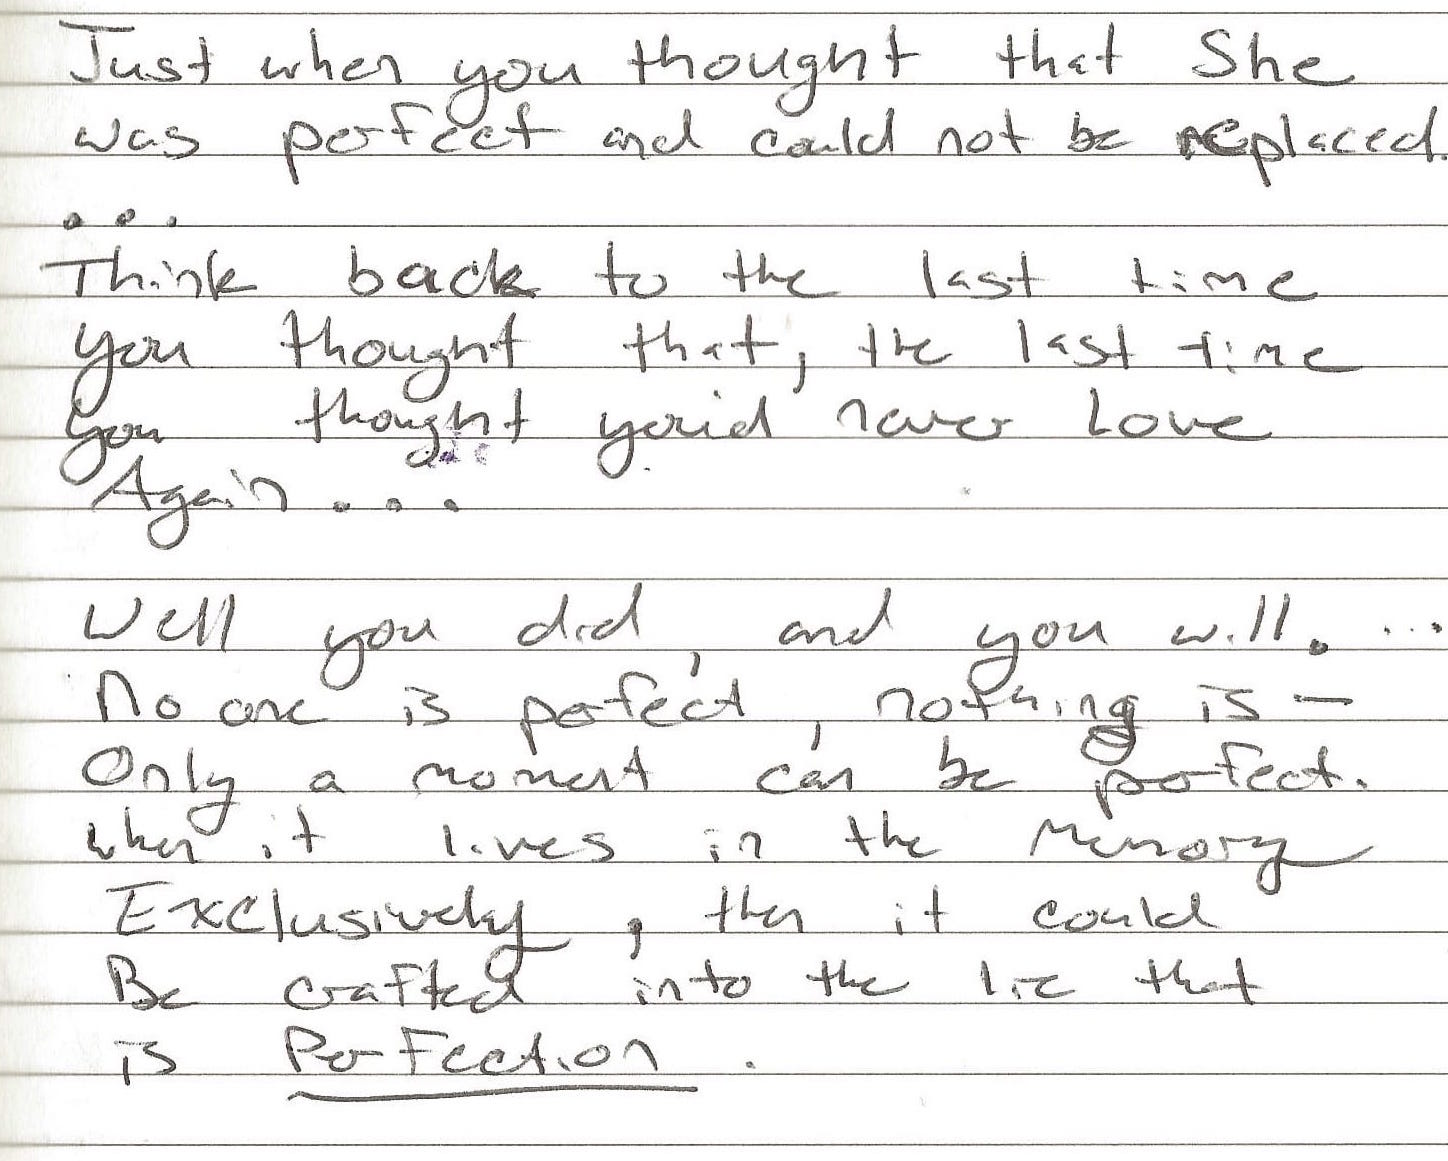 Just when you thought that She
was perfect and could not be replaced.
...
Think back to the last time
you thought that, the last time
you thought you'd never Love
Again....
Well you did, and you will. ...
No one is perfect, nothing is —
Only a moment can be perfect.
when it lives in the Memory
Exclusively, then it could
Be crafted into the lie that
is Perfection.